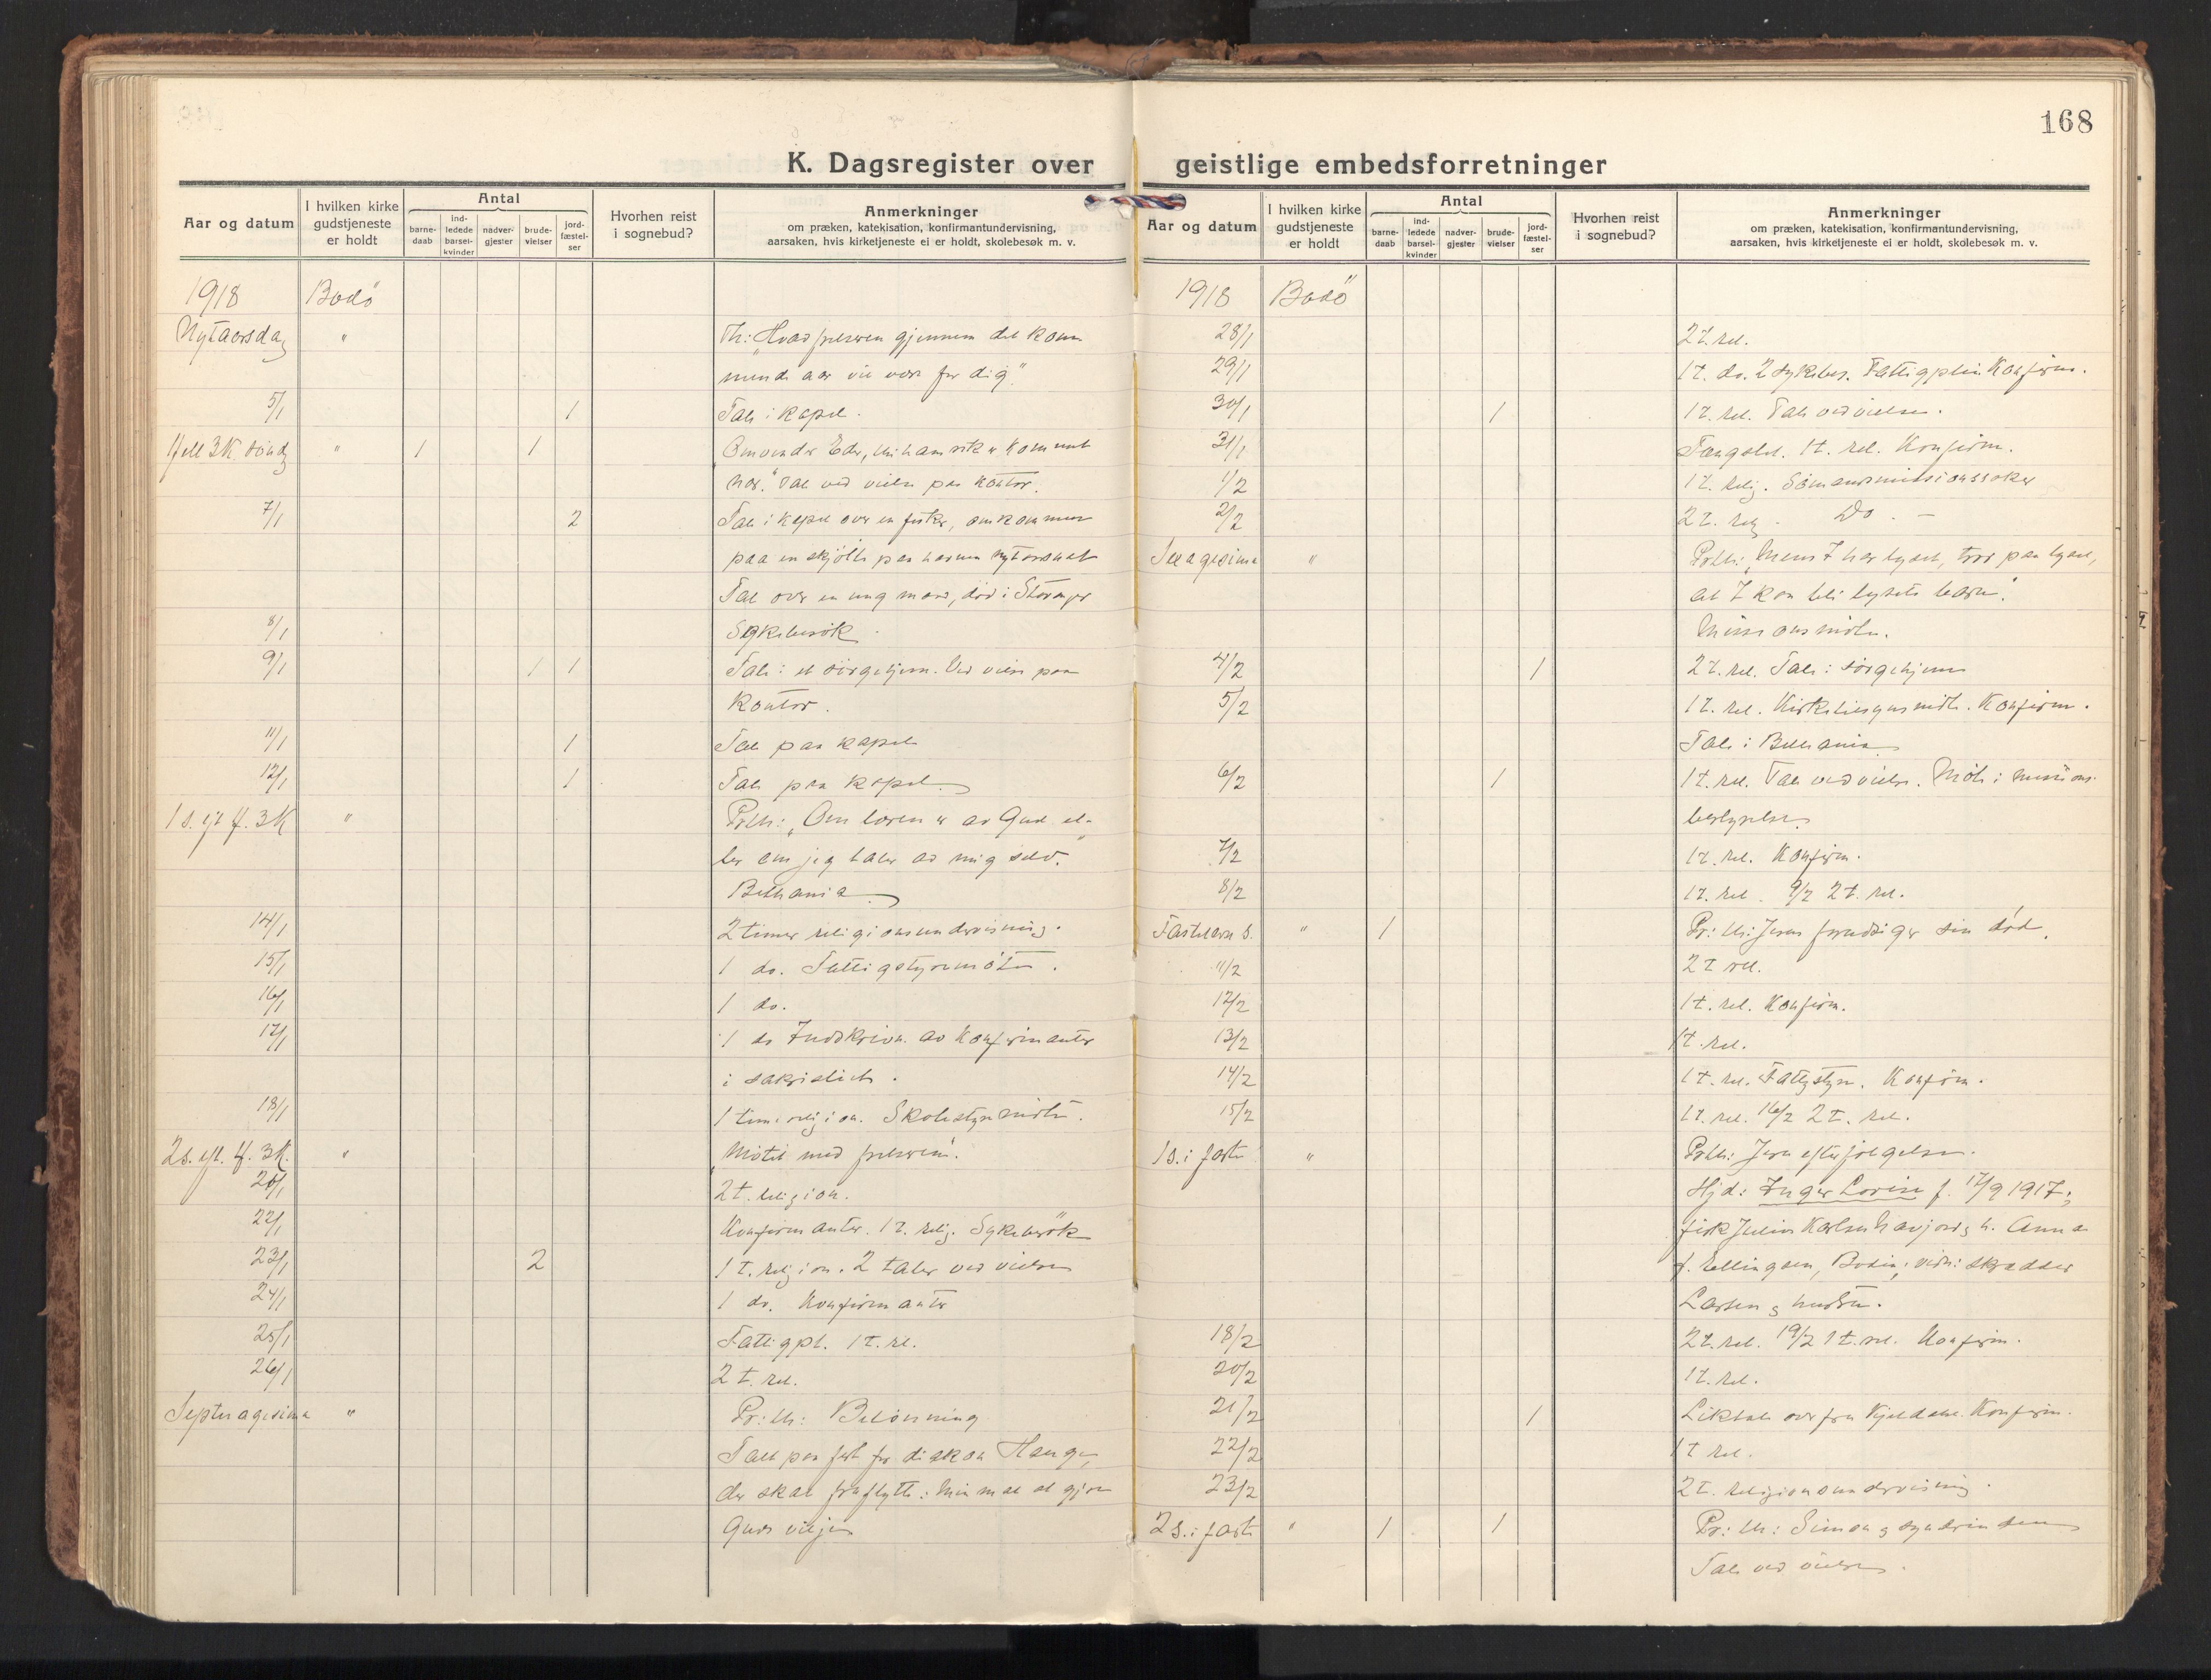 168
K. Dagsregister over
geistlige embedsforretninger
Aar og datum
I hvilken kirke gudstjeneste er holdt
Antal
barne-daab
ind-ledede barsel-kvinder
nadver-gjester
brude-vielser
jord-fæstel-ser
Hvorhen reist i sognebud?
Anmerkninger
om præken, katekisation, konfirmantundervisning,
aarsaken, hvis kirketjeneste ei er holdt, skolebesøk m. v.
1918 Bodö
Nytaarsdag " Th: "Hvad frelseren gjennem det kom
mende aar vil være for dig".
5/1 1 Tale i kapel.
H all 3 K. sønd " 1 1 "Omvender Eder, himlens rike er kommet
nær." Tale ved vielse paa kontor.
7/1 2 Tale i kapel over en fisker, omkommen
paa en skjöite paa havnen nytaarsnat
Tale over en ung mand, död i Stavanger
8/1 Sykebesök.
9/1 1 1 Tale i et sörgehjem. Ved vielse paa
kontor.
11/1 1 Tale paa kapel
12/1 1 Tale paa kapel.
1 s. eft. H. 3 K " Prth: "Om læren er av Gud el-
ler om jeg taler av mig selv."
Bethania.
14/1 2 timer religionsundervisning.
15/1 1 do. Fattigstyremöte.
16/1 1 do.
17/1 1 do Indskrivn. av Konfirmanter
i sakristiet.
18/1 1 time religion. Skolestyremöte.
2 s. eft. H. 3K. " "Mötet med frelseren".
2t. religion.
22/1 Konfirmanter. 1 t. relig. Sykebesök
23/1 2 1 t. religion. 2 taler ved vielse
24/1 1 do. Konfirmanter
25/1 Fattigpl. 1 t. rel.
26/1 2 t. rel.
Septuagesima " Pr: th: Belönning
Tale paa fest for diakon Hauge,
der skal fraflytte: Min mat at gjöre
Guds vilje
Aar og datum
I hvilken kirke gudstjeneste er holdt
Antal
barne-daab
ind-ledede barsel-kvinder
nadver-gjester
brude-vielser
jord-fæstel-ser
Hvorhen reist i sognebud?
Anmerkninger
om præken, katekisation, konfirmantundervisning,
aarsaken, hvis kirketjeneste ei er holdt, skolebesøk m. v.
1918 Bodö
28/1 2 t. rel.
29/1 1 t. do. 2 sykebes. Fattigplei. Konfirm.
30/1 1 1 t. rel. Tale ved vielse.
31/1 Fængslet. 1 t. rel. Konfirm.
1/2 1 t. relig. Sömandsmissionssaker
2/2 2 t. relg. Do. —
Sexagesima " Prth: "Mens I har lyset, tror paa lyset,
at I kan bli lysets barn".
Missionsmöte.
4/2 1 2 t. rel. Tale i sörgehjem
5/2 1 t. rel. Kirketilsynsmöte. Konfirm.
Tale i Bethania
6/2 1 1 t. rel. Tale ved vielse. Möte i missions-
bestyrelse.
7/2 1 t. rel. Konfirm.
8/2 1 t. rel. 9/2 2 t. rel.
Fastelavn s. " 1 Pr: th: Jesus forudsiger sin död.
11/2 2 t rel.
12/2 1 t. rel. Konfirm.
13/2 1 t. rel.
14/2 1 t. rel. Fattigstyre. Konfirm.
15/2 1 t. rel. 16/2 2 t. rel.
1 s. i faste " Prth: Jesu efterfölgelse.
Hjd: Inger Lovise f. 17/9 1917;
fisk Julius Karlsen Havjord og h. Anna
f. Ellingsen, Bodin; vidn: skrædder
Larsen og hustru.
18/2 2 t. rel. 19/2 1 t. rel. Konfirm.
20/2 1 t. rel.
21/2 1 Liktale over fru Kjeldahl. Konfirm.
22/2 1 t rel.
23/2 2 t. religionsundervisning.
2 s. i faste " 1 1 Pr: th: Simon og synderinden
Tale ved vielse.